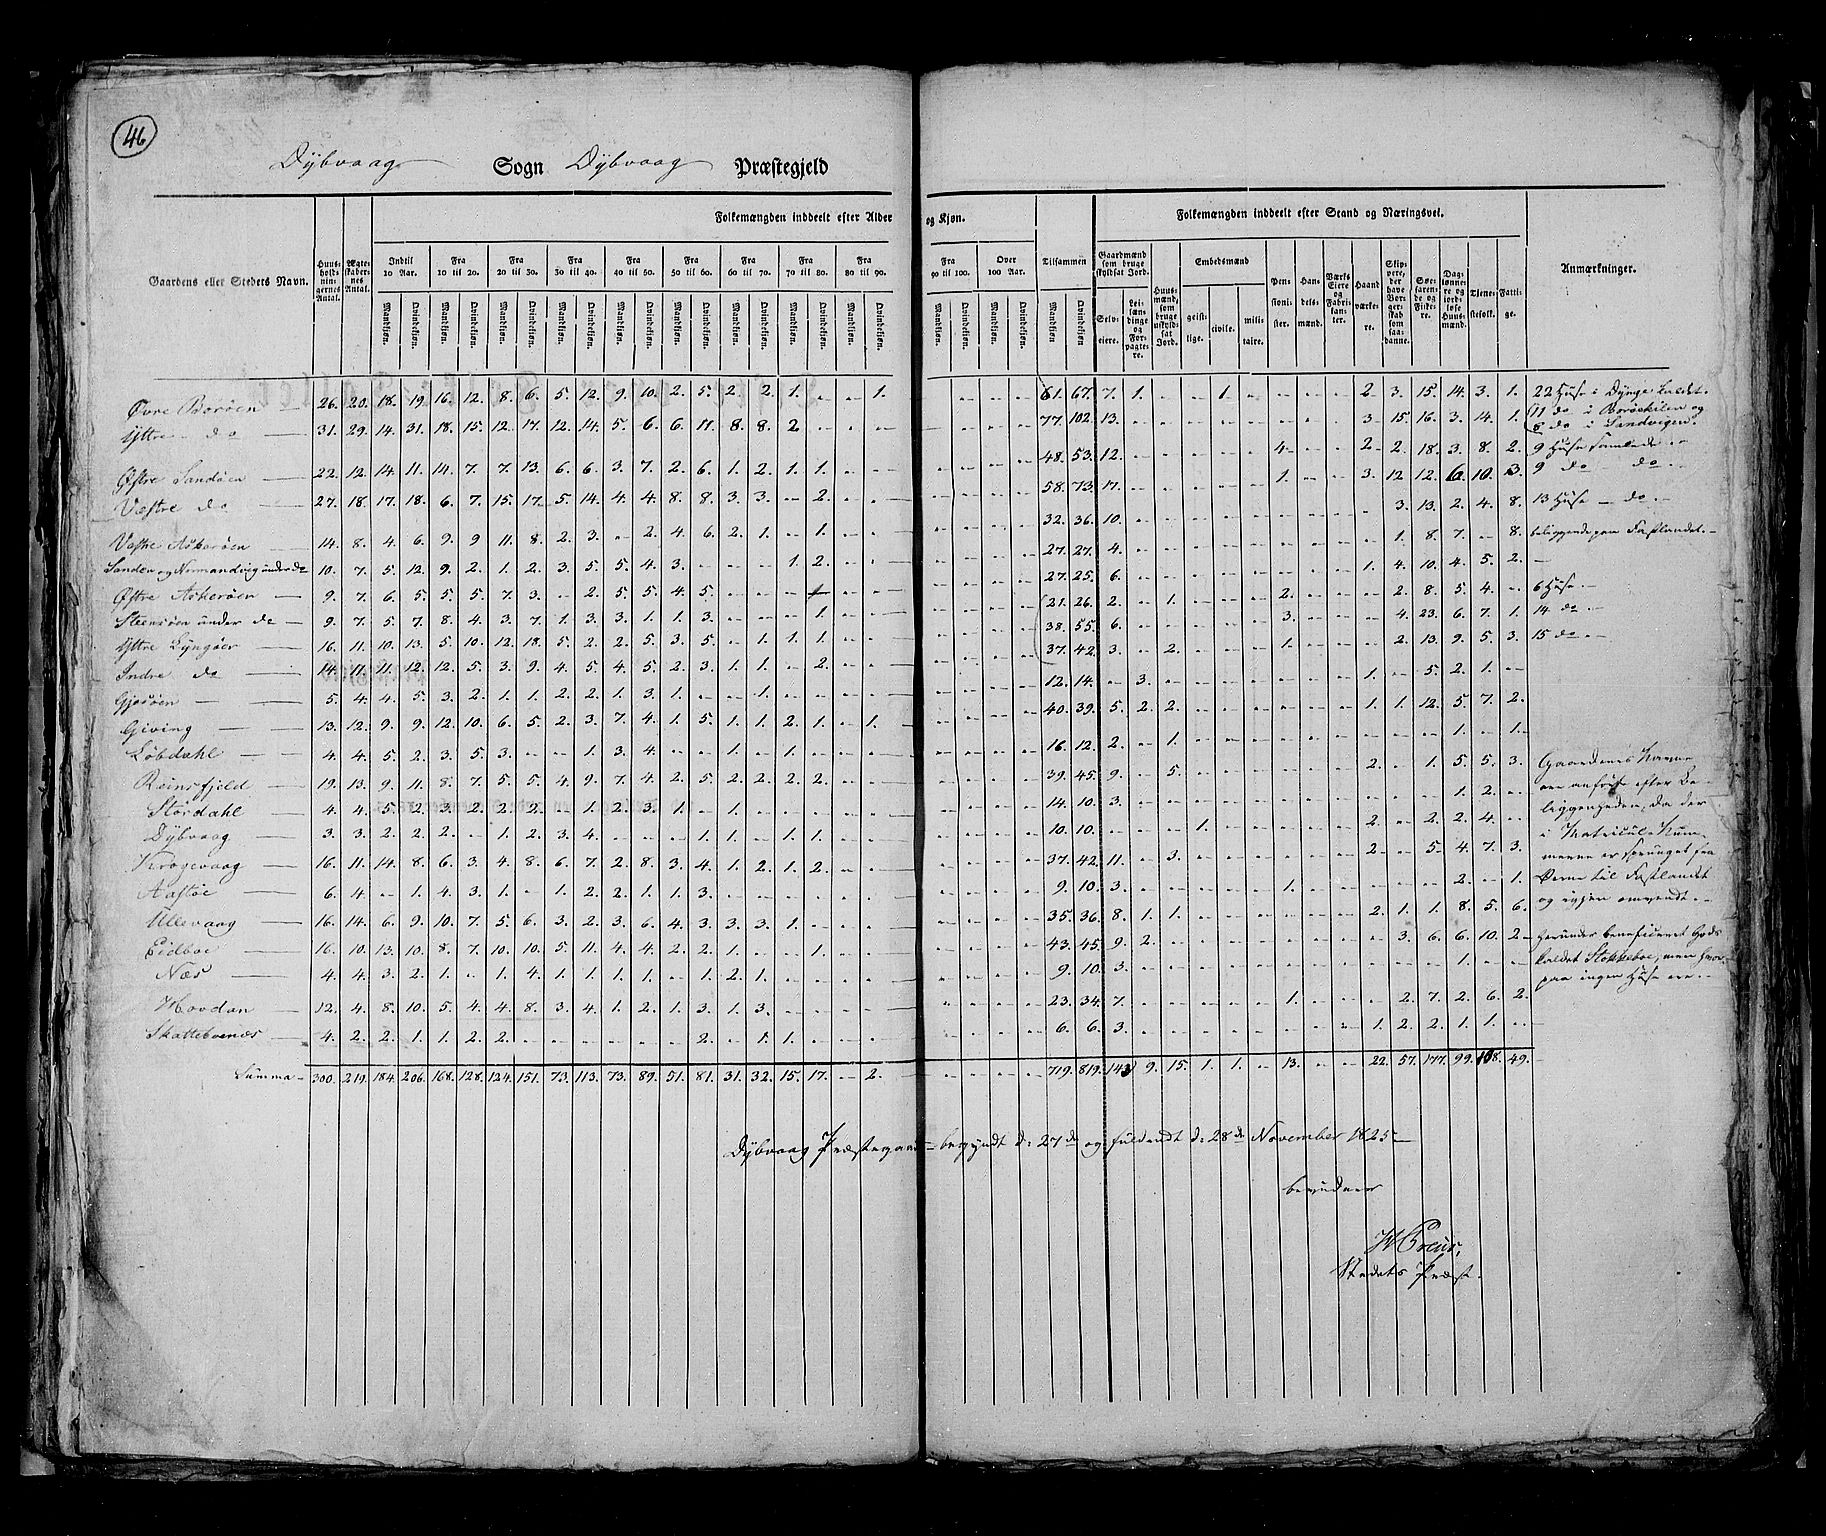 46
Dybvaag Sogn Dybvaag Præstegjeld
Folkemængden inddeelt efter Alder og Kjøn. Folkemængden inddeelt efter Stand og Næringsvei.
Gaardens eller Steders Navn. Huusholdningernes Antal. Ægteskabernes Antal. Indtil 10 Aar. Fra 10 til 20. Fra 20 til 30. Fra 30 til 40. Fra 40 til 50. Fra 50 til 60. Fra 60 til 70. Fra 70 til 80. Fra 80 til 90. Fra 90 til 100. Over 100 Aar. Tilsammen Gaardmænd som bruge skyldsat Jord. Selveiere. Leilændinge og Forpagtere. Huusmænd, som bruge uskyldsat Jord. Embedsmænd geistlige. civile. militaire. Pensionister. Handelsmænd. Værks Eiere og Fabrikanter. Haandværkere. Skippere, der have Borgerskab som saadanne. Søefarende og Fiskere. Daglønnere og jordløse Huusmænd. Tjenestefolk. Fattige. Anmærkninger.
Mandkiøn. Qvindekiøn. Mandkiøn. Qvindekiøn. Mandkiøn. Qvindekiøn. Mandkiøn. Qvindekiøn. Mandkiøn. Qvindekiøn. Mandkiøn. Qvindekiøn. Mandkiøn. Qvindekiøn. Mandkiøn. Qvindekiøn. Mandkiøn. Qvindekiøn. Mandkiøn. Qvindekiøn. Mandkiøn. Qvindekiøn. Mandkiøn. Qvindekiøn.
Øvre Borøen 26. 20. 18. 19. 16. 12. 8. 6. 5. 12. 9. 10. 2. 5. 2. 2. 1. - - 1. - - - - 61. 67. 7. 1. - - 1. - - - - 2. 3. 15. 14. 3. 1. 22 Huse i Dynge kaldet.
Yttre do 31. 29. 14. 31. 18. 15. 12. 17. 12. 14. 5. 6. 6. 11. 8. 8. 2. - - - - - - - 77. 102. 13. - - - - - - - - 3. 15. 16. 3. 14. 1. 11 do i Borøekilen og
6 do i Sandvigen.
Østre Sandøen 22. 12. 14. 11. 14. 7. 7. 13. 6. 6. 3. 7. 2. 6. 1. 2. 1. 1. - - - - - - 48. 53. 12. - - - - - 4. - - 2. 2. 18. 3. 8. 2. 9 Huse samlede
Vestre do 27. 18. 17. 18. 6. 7. 15. 17. 5. 14. 4. 4. 8. 8. 3. 3. - 2. - - - - - - 58. 73. 17. - - - - - 1. - - 3. 12. 12. 6. 10. 3. 9 do do
Vestre Askerøen 14. 8. 4. 6. 9. 9. 11. 8. 2. 3. - 2. 4. 6. 2. 1. - 1. - - - - - - 32. 36. 10. - - - - - - - - - 3. 13. 2. 4. 8. 13 Huse do
Sanden og Normandvig under do 10. 7. 5. 12. 9. 2. 1. 2. 3. 5. 5. 4. 3. - - - 1. 2. - - - - - - 27. 27. 4. - - - - - - - - - 1. 8. 7. - 8. beliggende paa Fastlandet.
Østre Askerøen 9. 7. 6. 5. 5. 5. 7. 3. - 2. 5. 5. 4. 5. - - - - - - - - - - 27. 25. 6. - - - - - - - - 1. 4. 10. 4. 5. 2. -
Steensøen under do 9. 7. 5. 7. 8. 4. 3. 7. 1. 3. 3. 1. 1. 3. - - - 1. - - - - - - 21. 26. 2. - 1. - - - 2. - - - 2. 8. 5. 4. - 6 Huse
Yttre Lyngøer 16. 11. 10. 13. 5. 10. 12. 18. 5. 2. 2. 5. 3. 5. - 1. 1. 1. - - - - - - 38. 55. 6. - - - - - 3. - - - 4. 23. 6. 7. 1. 14 do
Indre do 14. 11. 11. 12. 12. 5. 3. 9. 4. 5. 4. 5. 2. 3. 1. 1. - 2. - - - - - - 37. 42. 3. - 2. - - - 1. - - - 2. 13. 9. 5. 3. 15 do
Gjesøen 5. 4. 4. 5. 3. 2. 1. 1. 2. 2. 1. 3. 1. - - 1. - - - - - - - - 12. 14. - 3. - - - - - - - 1. - 5. 2. 1. -
Giving 13. 12. 9. 9. 12. 10. 6. 5. 2. 3. 7. 4. 1. 5. 1. 1. 2. 1. - 1. - - - - 40. 39. 5. 2. 2. - - - - - - 1. 1. 12. 5. 7. 2.
Lobdahl 4. 4. 5. 2. 3. 5. 3. - - 1. 3. 4. - - 1. - 1. - - - - - - - 16. 12. 2. - 1. - - - - - - - - - 1. - 1.
Reinsfjeld 19. 13. 9. 11. 8. 7. 5. 5. 4. 9. 7. 4. 2. 5. 2. 2. 2. 2. - - - - - - 39. 45. 9. - 5. - - - - - - 2. - 1. 5. 5. 3. Gaardenes Navne
Stordahl 4. 4. 5. 2. 3. 2. 2. 2. - 1. 2. 3. 1. - 1. - - - - - - - - - 14. 10. 3. - - - - - - - - - - - 1. 2. - ere anførte efter Be-
Dybvaag 3. 3. 2. 2. 2. - 1. 2. 3. 4. - - - 1. 1. - 1. 1. - - - - - - 10. 10. - - - 1. - - - - - 2. - 2. 2. 4. - liggenheden, da der
Krogevaag 16. 11. 14. 8. 6. 3. 4. 8. 6. 7. 2. 8. 3. 4. 1. 2. 1. 2. - - - - - - 37. 42. 11. - 3. - - - - - - 2. - 5. 4. 7. 3. i Matricul-Num-
merne er sprunget fra
Aastøe 6. 4. - 1. 4. 3. 1. - 1. 2. 2. 1. 1. 3. - - - - - - - - - - 9. 10. 3. - - - - - 1. - - - - - 2. - 1. Øerne til Fastlandet
Ullevaag 16. 14. 6. 9. 10. 7. 5. 6. 3. 2. 3. 6. 4. 3. 3. 3. 1. - - - - - - - 35. 36. 8. 1. 1. - - - - - - 2. 1. 1. 8. 5. 6. og igjen omvendt.
Eidboe 16. 10. 13. 10. 8. 7. 10. 10. 5. 11. 4. 4. 2. 2. 1. - - 1. - - - - - - 43. 45. 9. 2. - - - - - - - - 3. 6. 6. 10. 2. herunder beneficeret Gods
Næs 4. 4. 3. 2. 1. - 1. 4. 1. 1. 1. 1. - 1. 2. 1. - - - - - - - - 9. 10. 3. - - - - - - - - - - - 1. - - kaldet Stokkeboe, men hvor-
paa ingen Huse ere.
Hovdan 12. 4. 8. 10. 5. 4. 4. 8. 3. 4. 1. 2. 1. 3. 1. 3. - - - - - - - - 23. 34. 7. - - - - - 1. - - - 2. 7. 2. 6. 2.
Skattebonæs 4. 2. 2. 1. 1. 2. 2. - - - - - - 2. - 1. 1. - - - - - - - 6. 6. 3. - - - - - - - - 1. 2. 2. 1. 1. - -
Summa 300. 219. 184. 206. 168. 128. 124. 151. 73. 113. 73. 89. 51. 81. 31. 32. 15. 17. - 2. - - - - 719. 819. 143. 9. 15. 1. 1. - 13. - - 22. 57. 177. 99. 108. 49.
Dybvaag Præstegaard begyndt d: 27de og fuldendt d: 28de November 1825
bevidner
Stedets Præst.